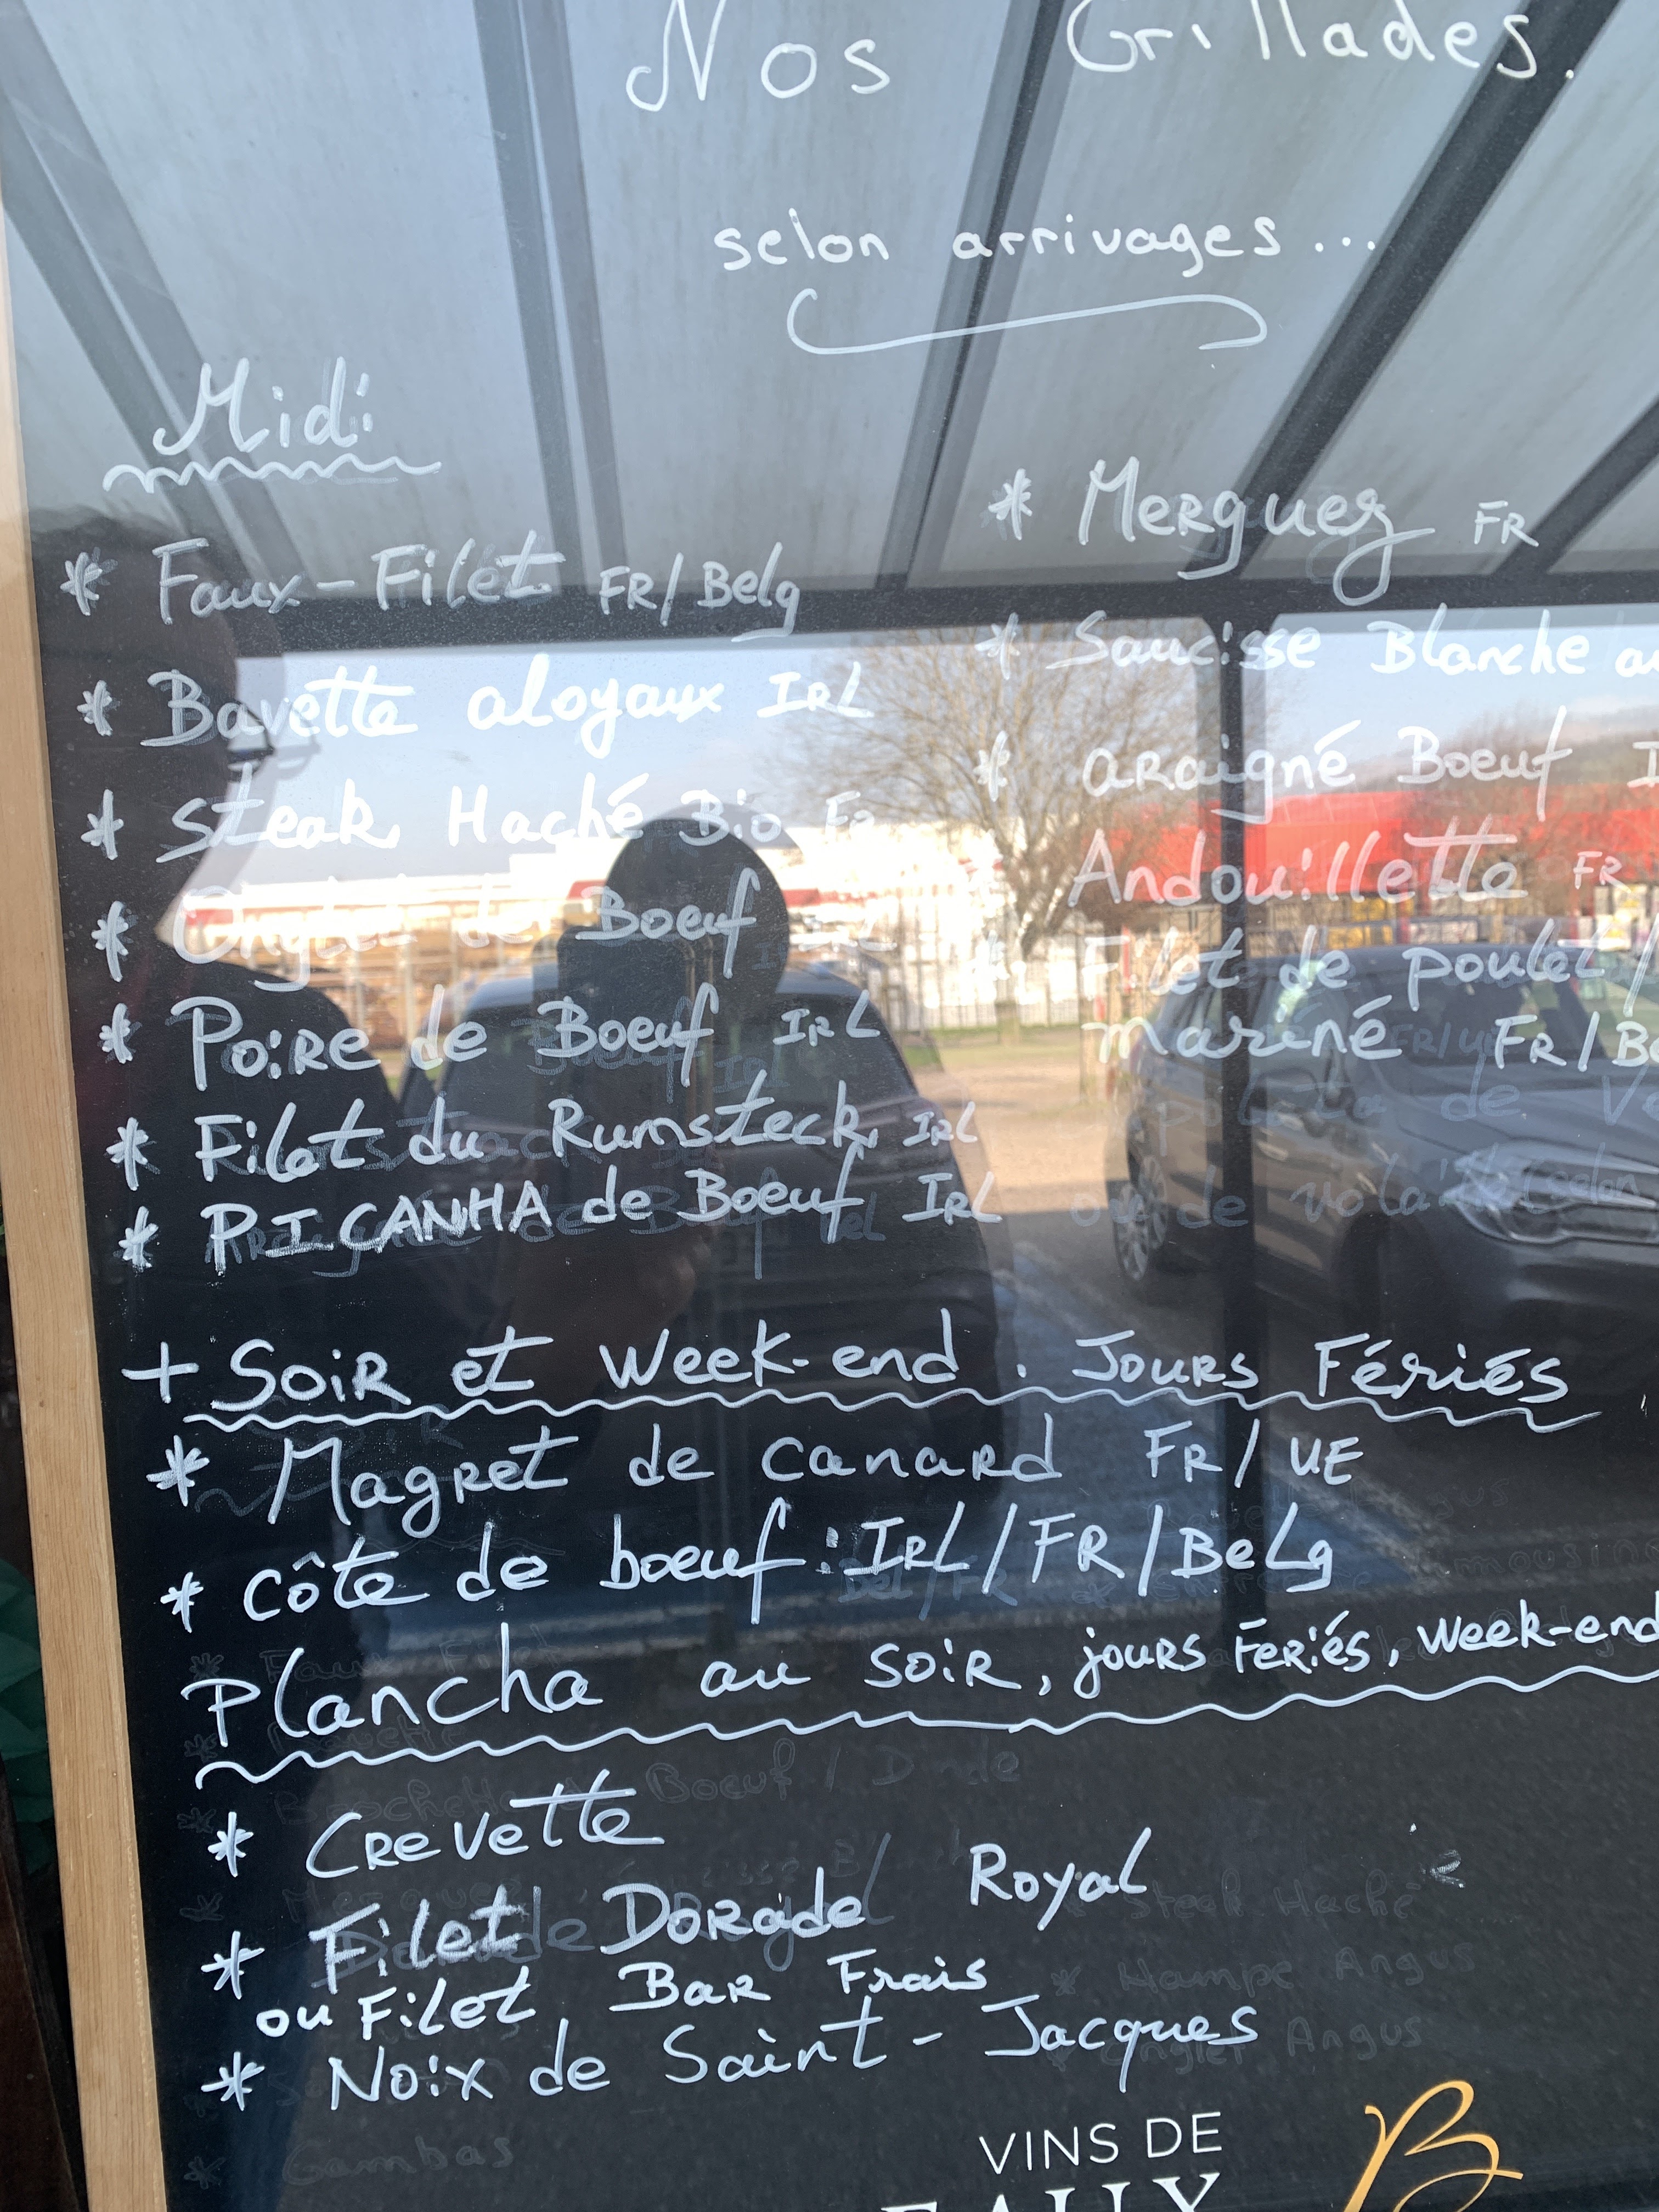 Nos Grillades.
selon arrivages...
Midi
* Faux-Filet FR/Belg
* Bavette aloyaux IRL
* Steak Haché Bio FR
* Onglet de Boeuf IRL
* Poire de Boeuf IRL
* Filet du Rumsteck IRL
* PICANHA de Boeuf IRL
* Merguez FR
* Saucisse Blanche
* araigné Boeuf
Andouillette FR
* Filet de poulet /
mariné FR/
+ Soir et Week-end . Jours Fériés
* Magret de canard FR/UE
* Côte de boeuf : IRL/FR/BeLg
Plancha au soir, jours Feriés, Week-end
* Crevette
* Filet Dorade Royal
ou Filet Bar Frais
* Noix de Saint-Jacques
* Gambas
VINS DE
B